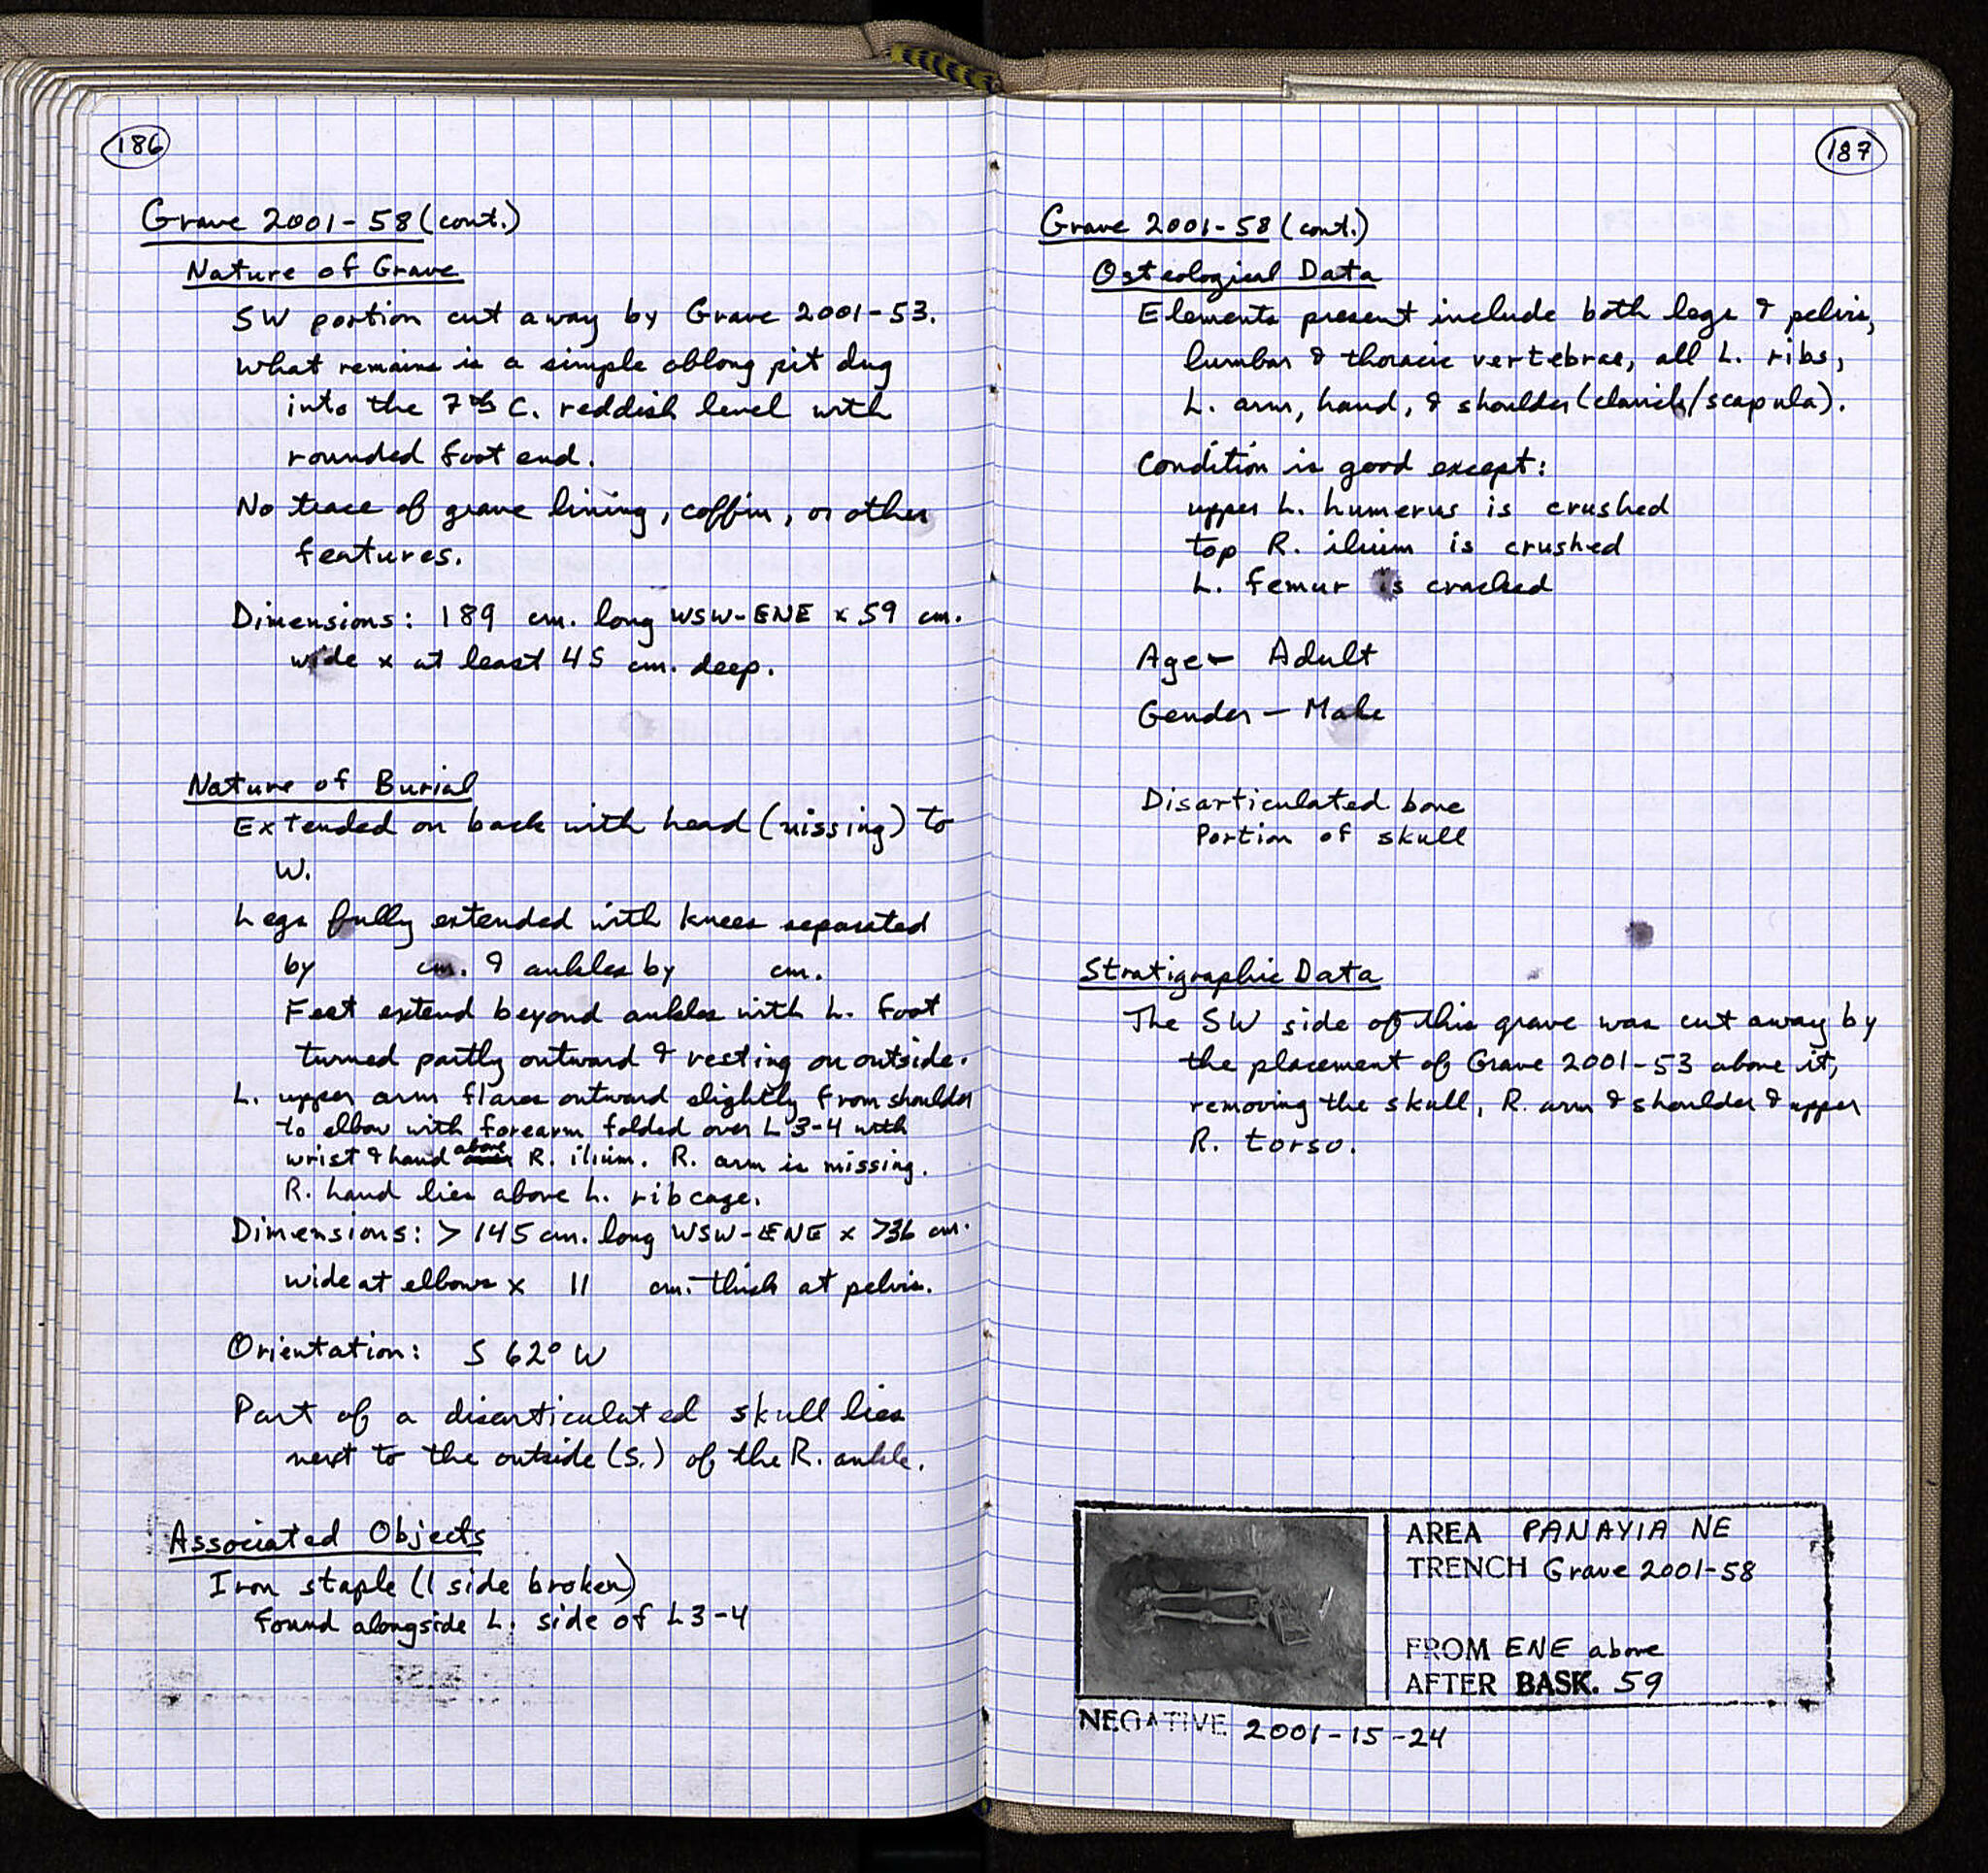 186
Grave 2001-58 (cont.)
Nature of Grave
SW portion cut away by Grave 2001-53.
What remains is a simple oblong pit dug
into the 7th C. reddish level with
rounded foot end.
No trace of grave lining, coffin, or other
features.
Dimensions: 189 cm. long WSW-ENE x 59 cm.
wide x at least 45 cm. deep.
Nature of Burial
Extended on back with head (missing) to
W.
Legs fully extended with knees separated
by cm. & ankles by cm.
Feet extend beyond ankles with L. foot
turned partly outward & resting on outside.
L. upper arm flares outward slightly from shoulder
to elbow with forearm folded over L 3-4 with
wrist & hand above R. ilium. R. arm is missing.
R. hand lies above L. rib cage.
Dimensions: > 145 cm. long WSW-ENE x >36 cm.
wide at elbows x 11 cm. thick at pelvis.
Orientation: S 62° W
Part of a disarticulated skull lies
next to the outside (S.) of the R. ankle.
Associated Objects
Iron staple (1 side broken)
found alongside L. side of L3-4
187
Grave 2001-58 (cont.)
Osteological Data
Elements present include both legs & pelvis,
lumbar & thoracic vertebrae, all L. ribs,
L. arm, hand, & shoulder (clavicle/scapula).
Condition is good except:
upper L. humerus is crushed
top R. ilium is crushed
L. femur is cracked
Age - Adult
Gender - Male
Disarticulated bone
Portion of skull
Stratigraphic Data
The SW side of this grave was cut away by
the placement of Grave 2001-53 above it,
removing the skull, R. arm & shoulder & upper
R. torso.
AREA PANAYIA NE
TRENCH Grave 2001-58
FROM ENE above
AFTER BASK. 59
NEGATIVE 2001-15-24